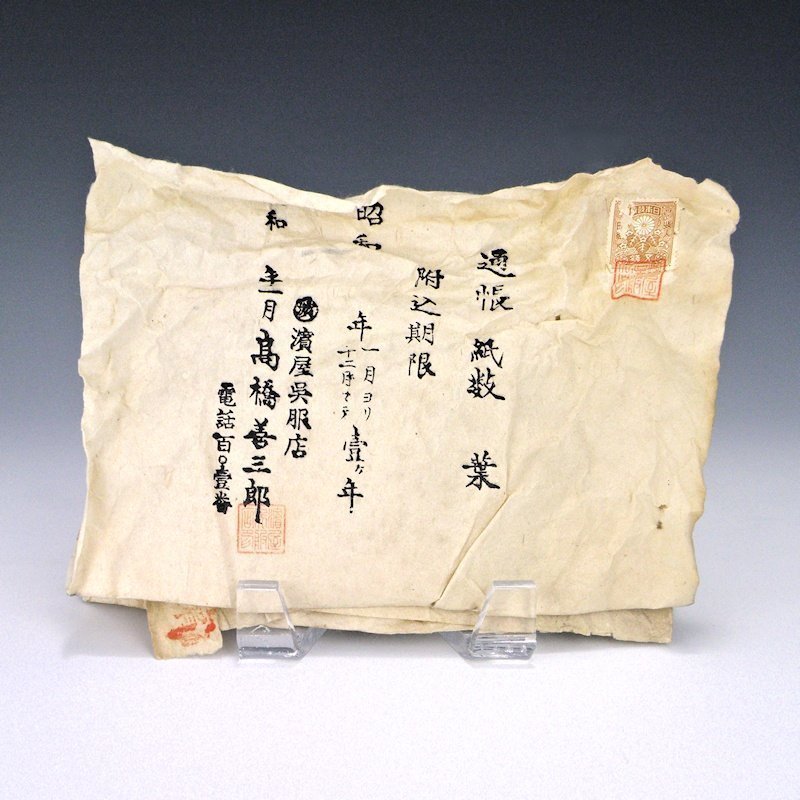 通帳紙数 葉
附込期限
昭和 年一月ヨリ
十二月マデ
壹ヶ年
濱屋呉服店
和 年一月 髙橋善三郎
電話百〇壹番